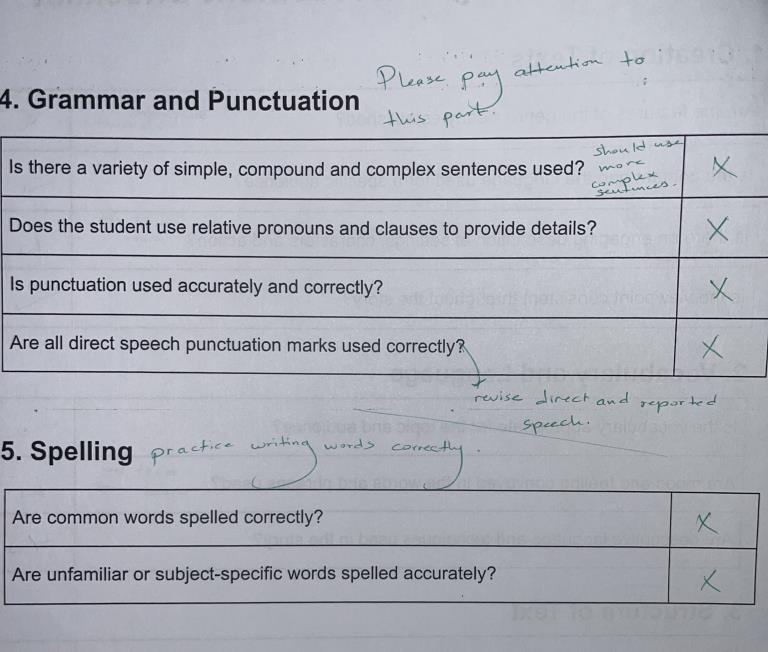 Please pay attention to
4. Grammar and Punctuation
this part.
Is there a variety of simple, compound and complex sentences used? should use more complex sentences. X
Does the student use relative pronouns and clauses to provide details? X
Is punctuation used accurately and correctly? X
Are all direct speech punctuation marks used correctly? X
revise direct and reported
speech.
5. Spelling practice writing words correctly.
Are common words spelled correctly? X
Are unfamiliar or subject-specific words spelled accurately? X